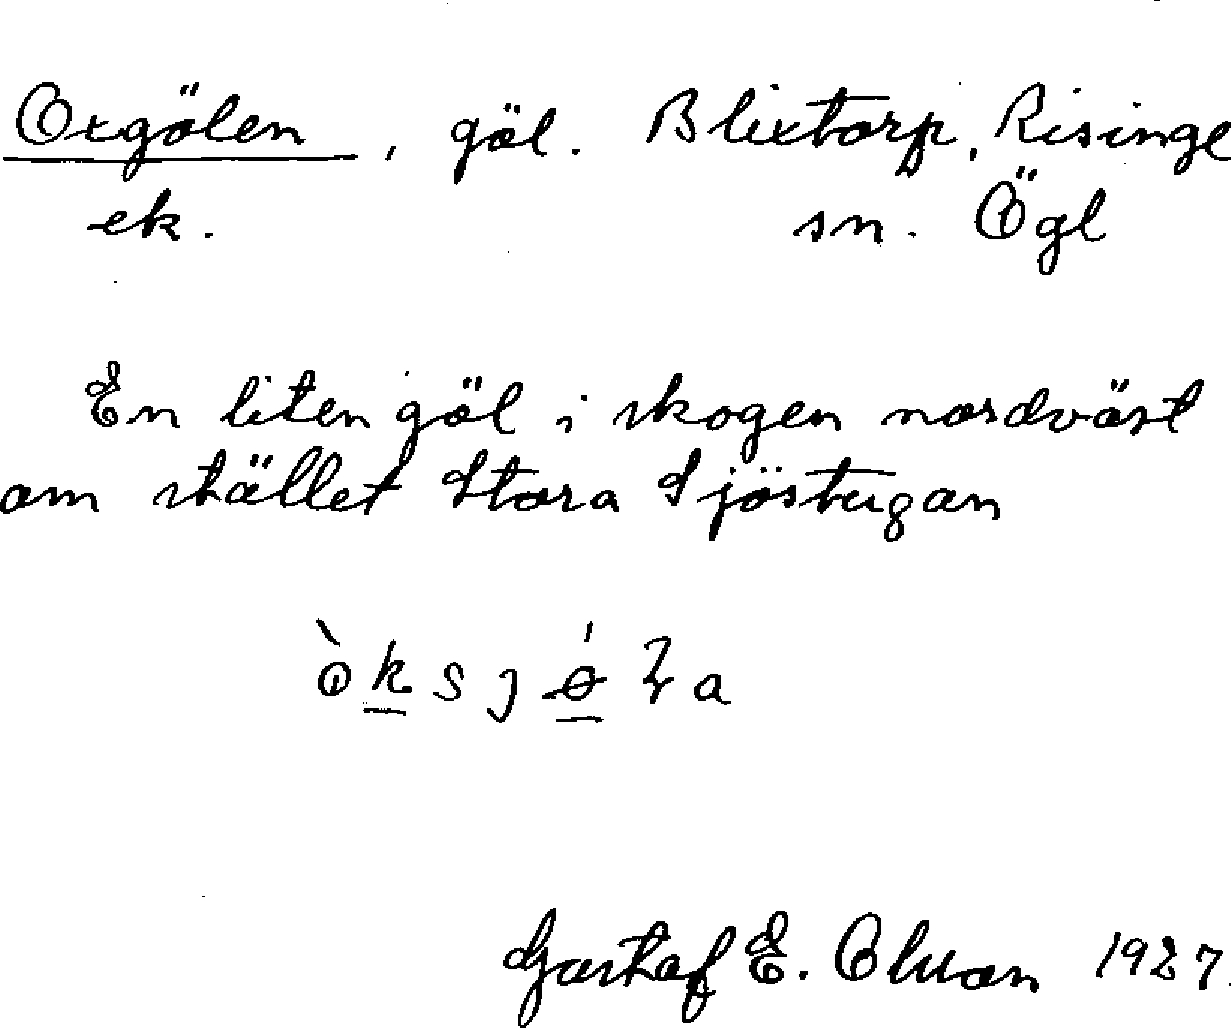 Oxgölen, göl. Blixtorp, Risinge
ek. sn. Ögl
En liten göl i skogen nordväst
om stället Stora Sjöstugan
Gustaf E. Olsson 1927.